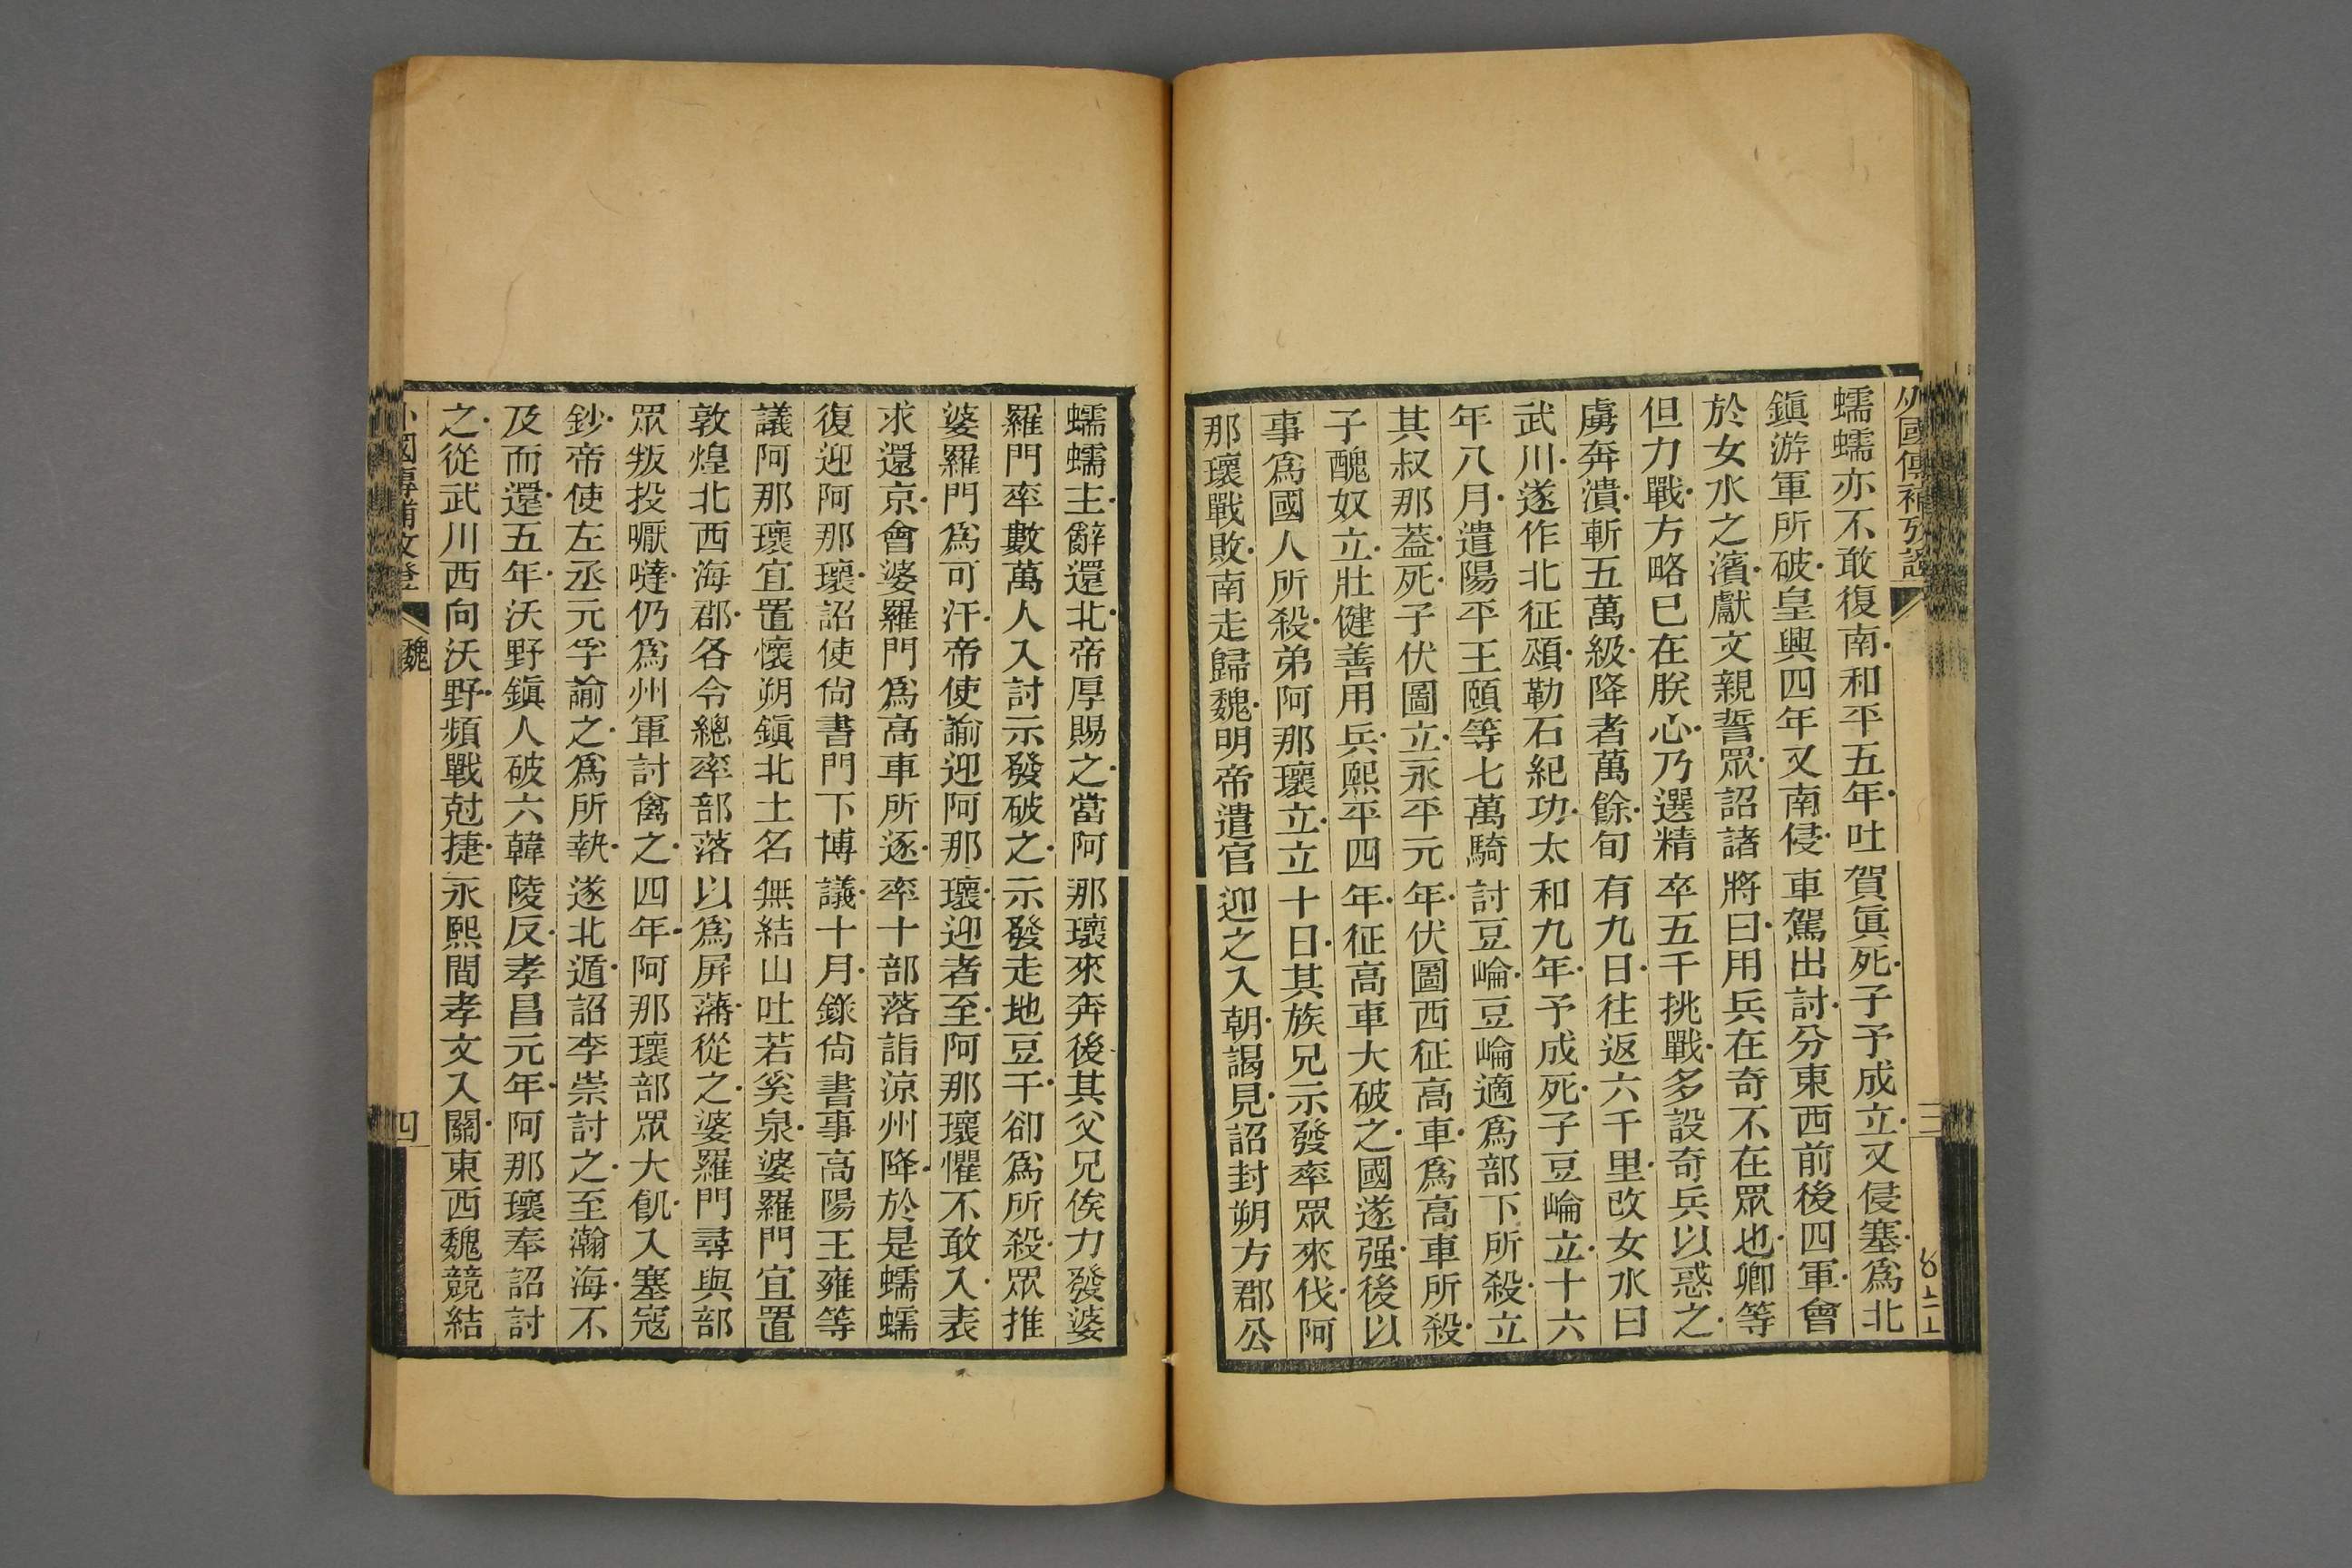 蠕蠕亦不敢復南和平五年吐賀眞死子予成立又侵塞爲北
鎭游軍所破皇興四年又南侵車駕出討分東西前後四軍會
於女水之濱獻文親誓眾詔諸將曰用兵在奇不在眾也卿等
但力戰方略已在朕心乃選精卒五千挑戰多設奇兵以惑之
虜奔潰斬五萬級降者萬餘旬有九日往返六千里改女水曰
武川遂作北征頌勒石紀功太和九年予成死子豆崘立十六
年八月遣陽平王頤等七萬騎討豆崘豆崘適爲部下所殺立
其叔那蓋死子伏圖立永平元年伏圖西征高車爲高車所殺
子醜奴立壯健善用兵熙平四年征高車大破之國遂强後以
事爲國人所殺弟阿那瓌立立十日其族兄示發率眾來伐阿
那瓌戰敗南走歸魏明帝遣官迎之入朝謁見詔封朔方郡公
三
蠕蠕主辭還北帝厚賜之當阿那瓌來奔後其父兄俟力發婆
羅門率數萬人入討示發破之示發走地豆干卻爲所殺眾推
婆羅門爲可汗帝使諭迎阿那瓌迎者至阿那瓌懼不敢入表
求還京會婆羅門爲高車所逐率十部落詣涼州降於是蠕蠕
復迎阿那瓌詔使尙書門下博議十月錄尙書事高陽王雍等
議阿那瓌宜置懷朔鎭北土名無結山吐若奚泉婆羅門宜置
敦煌北西海郡各令總率部落以爲屏藩從之婆羅門尋與部
眾叛投嚈噠仍爲州軍討禽之四年阿那瓌部眾大飢入塞寇
鈔帝使左丞元孚諭之爲所執遂北遁詔李崇討之至瀚海不
及而還五年沃野鎭人破六韓陵反孝昌元年阿那瓌奉詔討
之從武川西向沃野頻戰尅捷永熙間孝文入關東西魏競結
魏
四